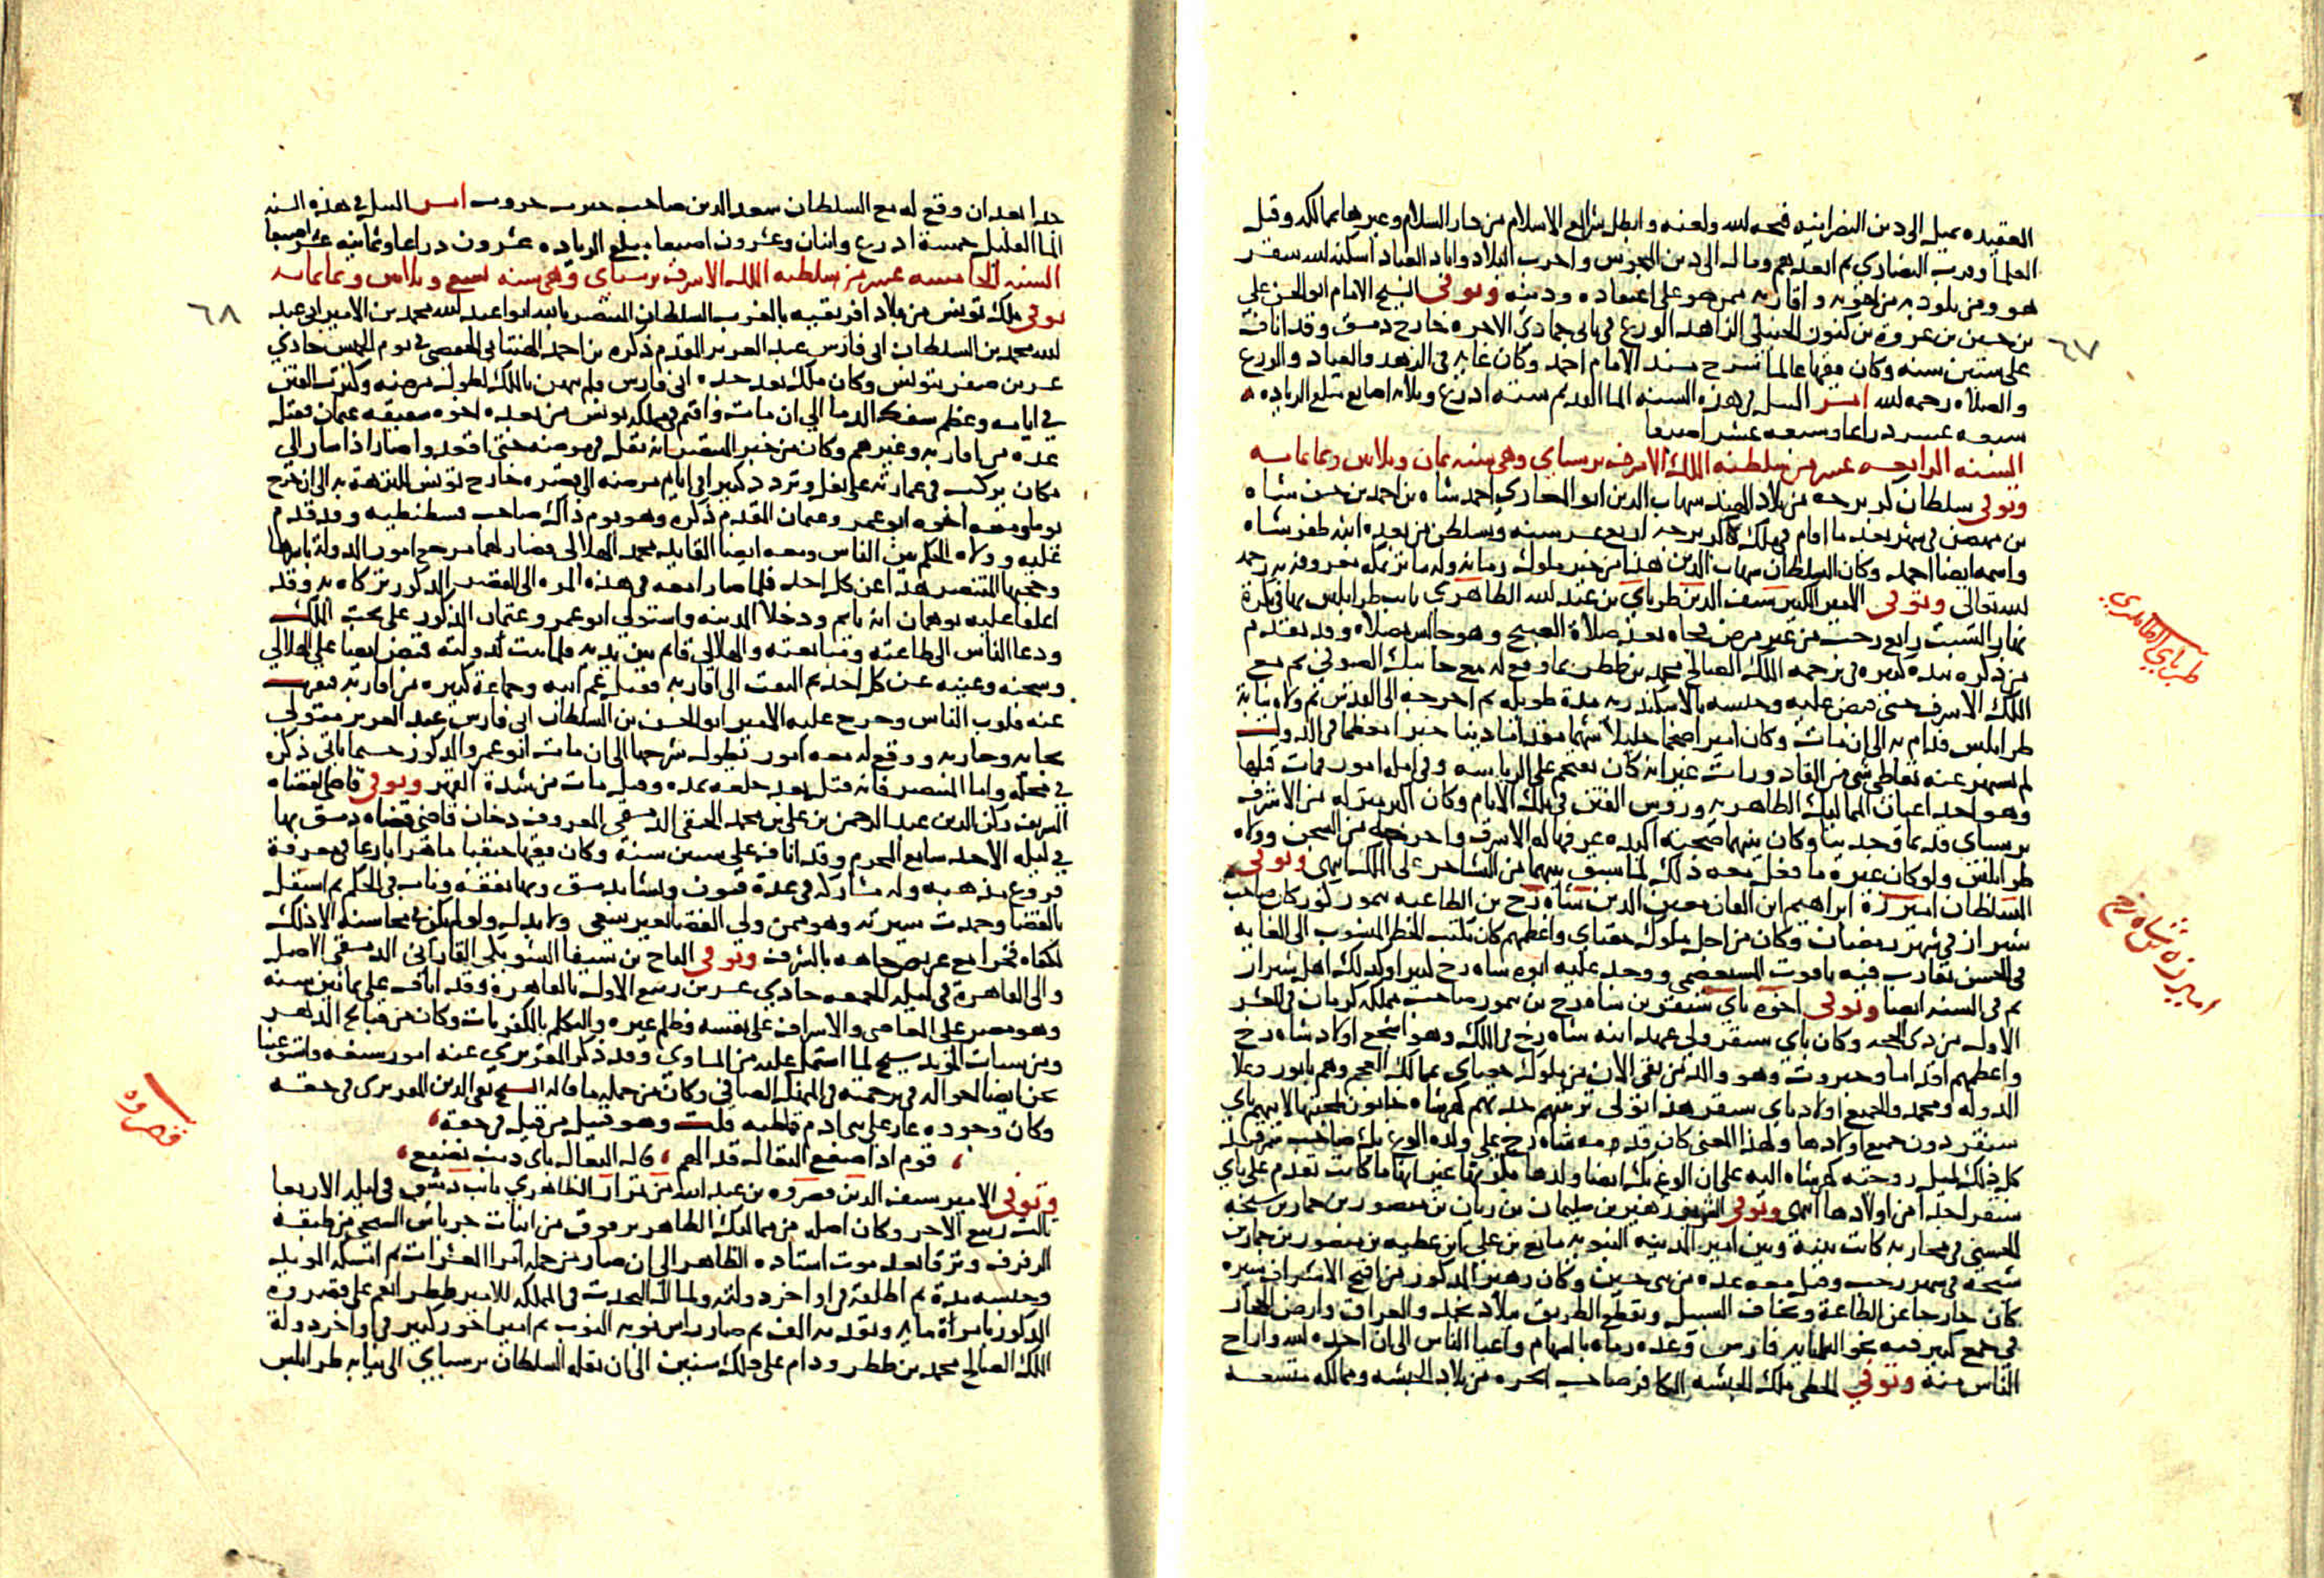 العقيده يميل الى دين النصرانيه قبحه الله ولعنه وابطل شرايع الاسلام من دار السلام وغيرها بممالكه وقتل
العلما وقرب النصاري ثم ابعدهم ومال الى دين المجوس واخرب البلاد واباد العباد اسكنه الله سقر
هو ومن يلوذ به من اخوته واقاربه ممن هو على اعتقاده ودينه وتوفي الشيخ الامام ابو الحسن علي
بن حسين بن عروة بن كنون الحنبلي الزاهد الورع في ثاني جمادي الاخره خارج دمشق وقد اناف
على ستين سنه وكان فقيها عالما شرح مسند الامام احمد وكان غايه في الزهد والعباد والورع
والصلاه رحمه الله امر النيل في هذه السنه الما القديم سته ادرع وثلاثه اصابع مبلغ الزياده
سبعه عشر دراعا وسبعه عشر اصبعا
السنه الرابعه عشر من سلطنه الملك الاشرف برسباي وهي سنه ثمان وثلاثين وثمانمايه
وتوفي سلطان كلبرجه من بلاد الهند شهاب الدين ابو المغازي احمد شاه بن احمد بن حسن شاه
بن بهمن في شهر بعد ما اقام في ملك كلبرجه اربع عشر سنه وتسلطن من بعده ابنه ظفر شاه
واسمه ايضا احمد وكان السلطان شهاب الدين هذا من خير ملوك زمانه وله ماثر بمكه معروفه به رحمه
الله تعالى وتوفي الامير الكبير سيف الدين طرباي بن عبد الله الظاهري نايب طرابلس بها في بكرة
نهار السبت رابع رجب من غير مرض فجاه بعد صلاة الصبح وهو جالس بمصلاه وقد تقدم
من ذكره نبذه كبيره في ترجمه الملك الصالح محمد بن ططر بما وقع له مع جانبك الصوفي ثم مع
الملك الاشرف حتى قبض عليه وحبسه بالاسكندريه مدة طويله ثم اخرجه الى القدس ثم ولاه نيابة
طرابلس فدام به الى ان مات وكان اميرا ضخما جليلا شهما مقداما دينا خيرا معظما في الدولت
لم يشهر عنه تعاطي شي من القادورات غير انه كان يقتحم على الرياسه وفي امله امور فمات قبلها
وهو احد اعيان المماليك الظاهريه وروس الفتن في تلك الايام وكان اكبر منزله من الاشرف
برسباي قديما وحديثا وكان بينهما صحبه اكيده عرفها له الاشرف واخرجه من السجن وولاه
طرابلس ولو كان غيره ما فعل معه ذلك لما سبق بينهما من التشاجر على الملك انتهى وتوفي
السلطان اميرزة ابراهيم ابن القان معين الدين شاه رخ بن الطاغيه تيمور كوركان صاحب
شيراز في شهر رمضان وكان من اجل ملوك جغتاي واعظمهم كان يكتب الخط المنسوب الى الغايه
في الحسن يقارب فيه ياقوت المستعصمي ووجد عليه ابوه شاه رخ كثيرا وكذلك اهل شيراز
ثم في السنه ايضا وتوفي اخوه باي سنقر بن شاه رخ بن تيمور صاحب مملكه كرمان في العشر
الاول من دي الحجه وكان باي سنقر ولي عهد ابيه شاه رخ في الملك وهو اشجع اولاد شاه رخ
واعظمهم اقداما وجبروت وهو والد من بقي الان من ملوك جغتاي بممالك العجم وهم بابور وعلا
الدوله ومحمد والجميع اولاد باي سنقر هذا تولى تربيتهم جدتهم كهرشاه خاتون لمحبتها لابيهم باي
سنقر دون جميع اولادها ولهذا المعنى كان قدمه شاه رخ على ولده الوغ بك صاحب سمرقند
كل ذلك لميل زوجته كهرشاه اليه على ان الوغ بك ايضا ولدها بكريها غير انها ما كانت تقدم على باي
سنقر احدا من اولادها انتهى وتوفي الشريف زهير بن سليمان بن ريان بن منصور بن جماز بن شيحه
الحسيني في محاربه كانت بينه وبين امير المدينه النبويه مانع بن علي بن عطيه بن منصور بن جماز بن
شيحه في شهر رجب وقتل معه عده من بني حسين وكان زهير المذكور من اقبح الاشراف سيره
كان خارجا عن الطاعة ويخاف السبيل ويقطع الطريق ببلاد نجد والعراق وارض الحجاز
في جمع كبير فيه نحو الثلثمايه فارس وعده رماه بالسهام واعيا الناس الى ان اخده الله واراح
الناس منه وتوفي الحطي ملك الحبشه الكافر صاحب امحره من بلاد الحبشه وممالكه متسعه
٦٧
طرباي الظاهري
اميرزه شاه رخ
جدا بعد ان وقع له مع السلطان سعد الدين صاحب جبرت حروب امر النيل في هذه السنه
الما القليل خمسة ادرع واثنان وعشرون اصبعا مبلغ الزياده عشرون دراعا وثمانيه عشر اصبعا
السنه الخامسه عشر من سلطنه الملك الاشرف برسباي وهي سنه تسع وثلاثين وثمانمايه
توفي ملك تونس من بلاد افريقيه بالغرب السلطان المنتصر بالله ابو عبد الله محمد بن الامير ابي عبد
الله محمد بن السلطان ابي فارس عبد العزيز المقدم ذكره بن احمد الهنتاني الحفصي في يوم الخميس حادي
عشرين صفر بتونس وكان ملك بعد جده ابي فارس ولم يتهن بالملك لطول مرضه وكثرت الفتن
في ايامه وعظم سفك الدما الي ان مات واقيم في مملكه تونس من بعده اخوه شقيقه عثمان فقتل
عده من اقاربه وغيرهم وكان من خبر المنتصر انه ثقل في مرضه حتى اقعد واصار اذا سار الى
مكان يركب في عماريه على بغل وتردد كثيرا في ايام مرضه الى قصره خارج تونس للتنزه به الى ان خرج
يوما ومعه اخوه ابو عمرو عثمان المقدم ذكره وهو يوم ذاك صاحب قسطنطينيه وقد قدم
عليه وولاه الحكم بين الناس ومعه ايضا القايد محمد الهلالي فصار لهما مرجع امور الدولة باسرها
وحجبا المنتصر هذا عن كل احد فلما صارا معه في هذه المره الى القصر المذكور تركاه به وقد
اغلقا عليه يوهمان انه نايم ودخلا المدينه واستولى ابو عمرو عثمان المذكور على تخت الملك
ودعا الناس الى طاعته ومبايعته والهلالي قايم بين يديه فلما ثبتت دولته قبض ايضا على الهلالي
وسجنه وغيبه عن كل احد ثم التفت الى اقاربه فقتل عم ابيه وجماعة كبيره من اقاربه فنفرت
عنه قلوب الناس وخرج عليه الامير ابو الحسن بن السلطان ابي فارس عبد العزيز متولي
بجايه وحاربه ووقع له معه امور يطول شرحها الى ان مات ابو عمرو المذكور حسبما ياتي ذكره
في محله واما المنتصر فانه قتل بعد خلعه بمده وقيل مات من شدة القهر وتوفي قاضي القضاه
الشريف ركن الدين عبد الرحمن بن علي بن محمد الحنفي الدمشقي المعروف بدخان قاضي قضاه دمشق بها
في ليله الاحد سابع المحرم وقد اناف على ستين سنة وكان فقيها حنفيا ماهرا بارعا في معرفة
فروع مذهبه وله مشاركه في عدة فنون ونشا بدمشق وبها تفقه وناب في الحكم ثم استقل
بالقضا وحمدت سيرته وهو ممن ولي القضا بغير سعي ولا بدل ولو لم يكن في محاسنه الا ذلك
لكفاه فخرا مع عريض جاهه بالشرف وتوفي التاج بن سيفا الشوبكي القازاني الدمشقي الاصل
والى القاهرة في ليله الجمعه حادي عشرين ربيع الاول بالقاهرة وقد اناف على ثمانين سنه
وهو مصر على المعاصي والاسراف على نفسه وظلم غيره والتكلم بالكفريات وكان من قبايح الدهر
ومن سيات المويد شيخ لما اشتمل عليه من المساوي وقد ذكر المقريزي عنه امور شنيعه واستوعبنا
نحن ايضا احواله في ترجمته في المنهل الصافي وكان من جمله ما قاله الشيخ تقي الدين المقريزي في حقه
وكان وجوده عار على بني ادم قاطبه قلت وهو كمن قيل في حقه
قوم اذا صفع النعال قدالهم قال النعال باي ذنب نصفع
وتوفي الامير سيف الدين قصروه بن عبد الله من تمراز الظاهري نايب دمشق في ليله الاربعا
ثالث ربيع الاخر وكان اصله من مماليك الظاهر برقوق من انيات جرباش الشيخي من طبقة
الرفرف وترقا بعد موت استاده الظاهر الى ان صار من جمله امرا العشرات ثم امسكه المويد
وحبسه مدة ثم اطلقه في اواخر دولته ولما ال التحدث في المملكه للامير ططر انعم على قصروه
المذكور بامراة مايه وتقدمه الف ثم صار راس نوبه النوب ثم امير اخور كبير في اواخر دولة
الملك الصالح محمد بن ططر ودام على ذلك سنين الى ان نقله السلطان برسباي الى نيابه طرابلس
٦٨
قصروه